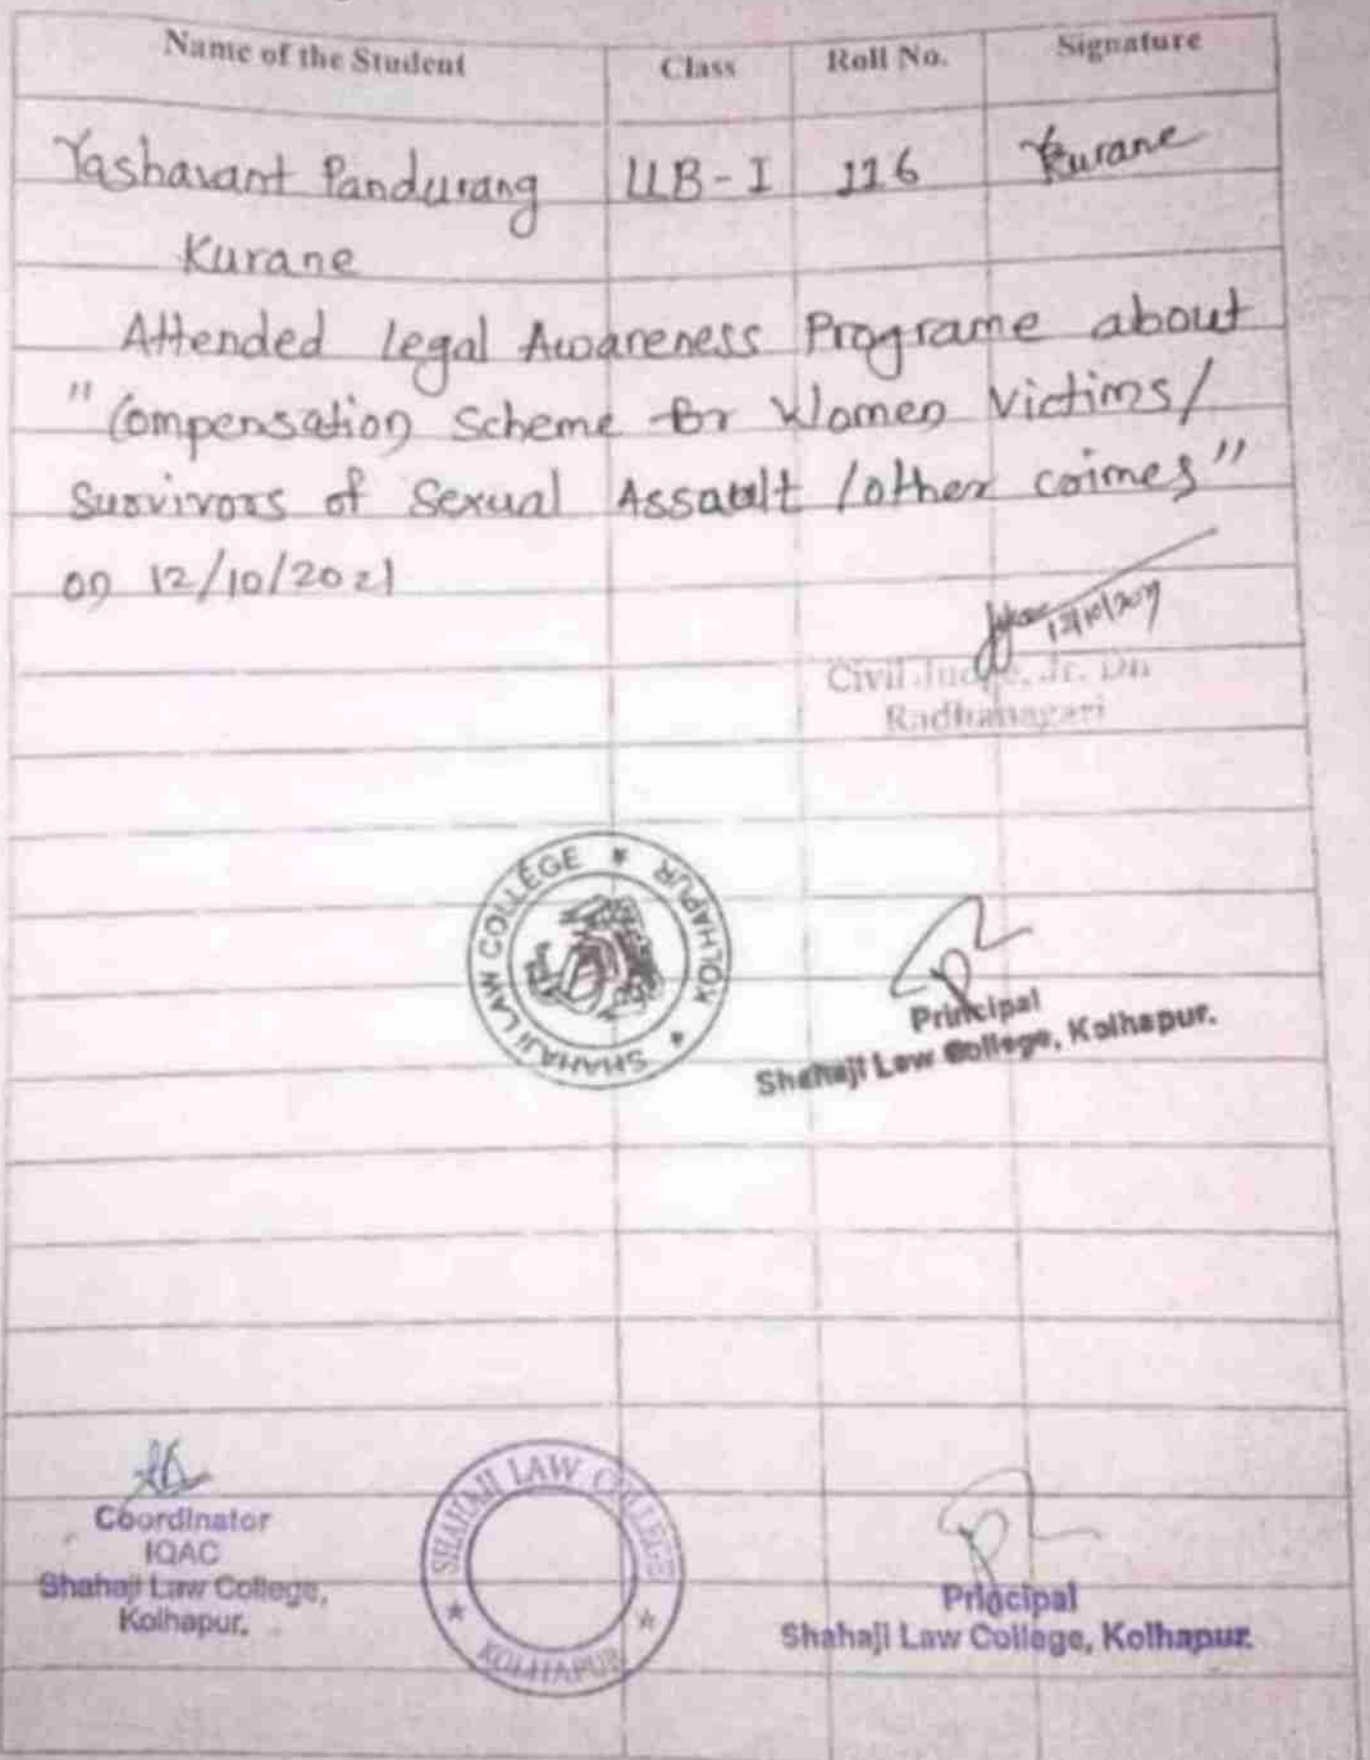 Name of the Student Class Roll No. Signature
Yashavant Pandurang LLB-I 116 Kurane
Kurane
Attended Legal Awareness Programe about
"Compensation Scheme for Women Victims/
Survivors of Sexual Assault /other crimes"
on 12/10/2021
12/10/2021
Civil Judge, Jr. Dn
Radhanagari
SHAHAJI LAW COLLEGE * KOLHAPUR *
Principal
Shahaji Law College, Kolhapur.
Coordinator
IQAC
Shahaji Law College,
Kolhapur.
SHAHAJI LAW COLLEGE
* KOLHAPUR *
Principal
Shahaji Law College, Kolhapur.